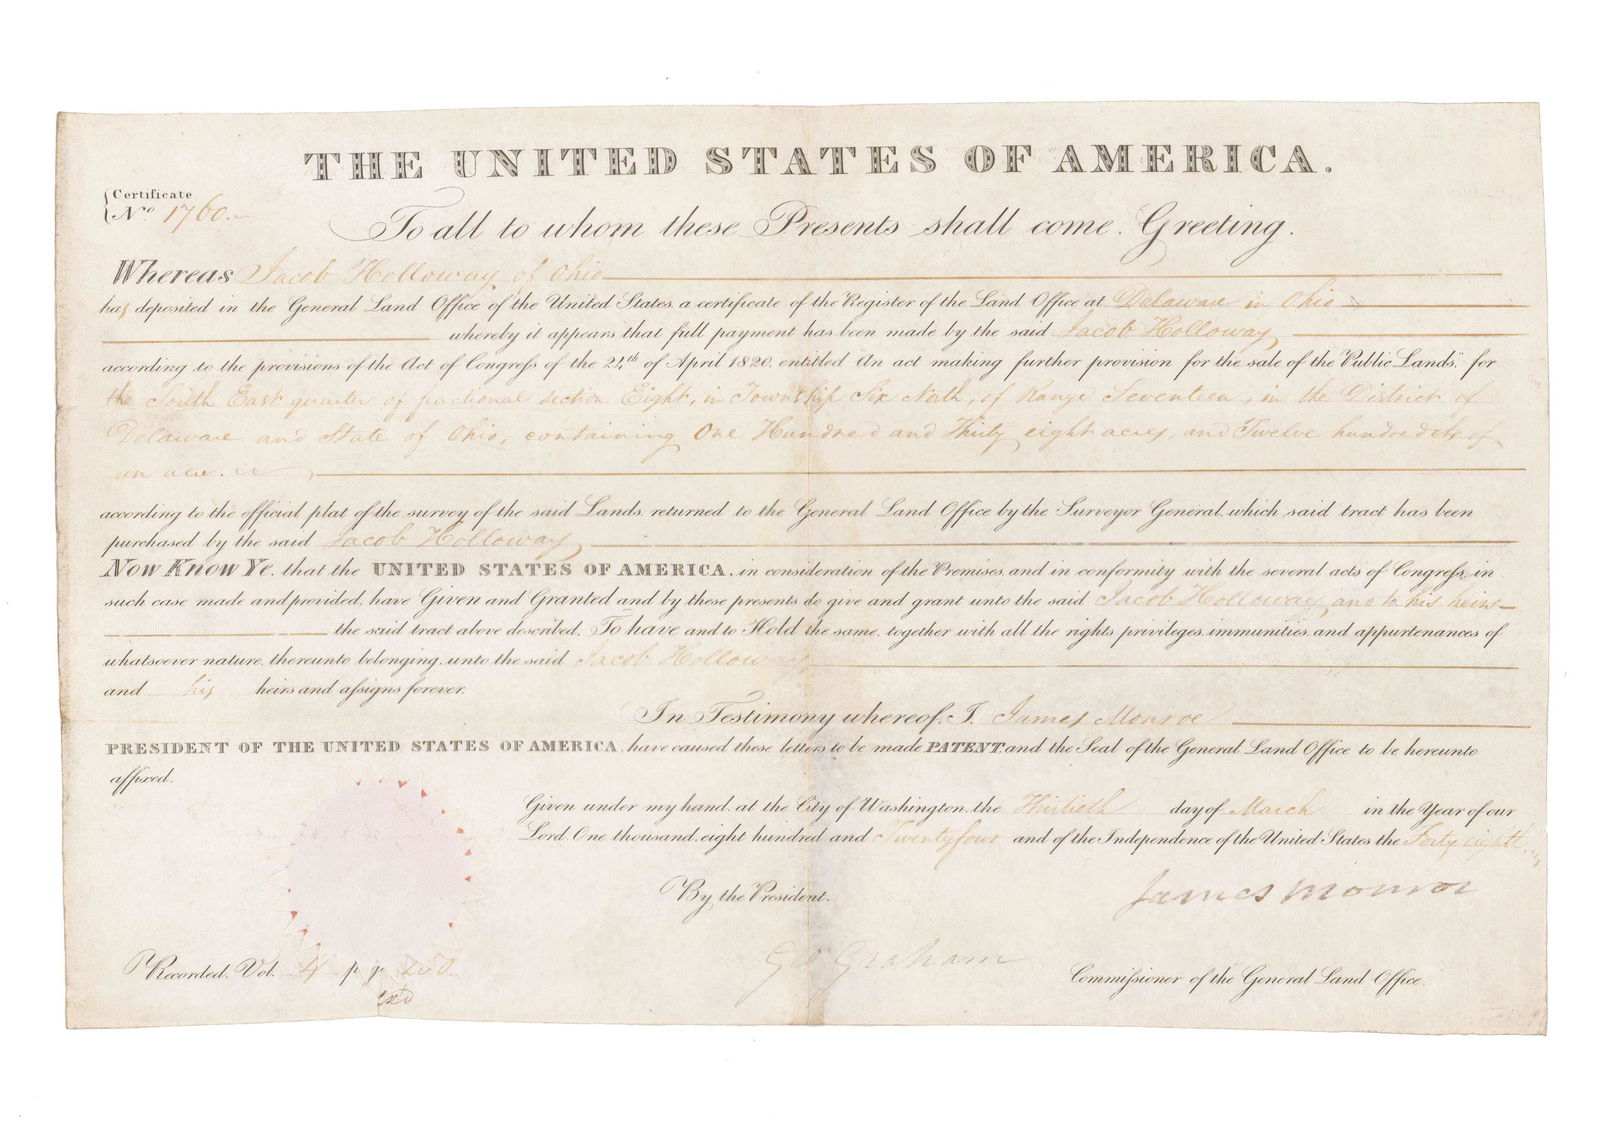 THE UNITED STATES OF AMERICA.
Certificate
No. 1760.
To all to whom these Presents shall come, Greeting.
Whereas Jacob Holloway of Ohio
has deposited in the General Land Office of the United States, a certificate of the Register of the Land Office at Delaware in Ohio
whereby it appears that full payment has been made by the said Jacob Holloway
according to the provisions of the Act of Congress of the 24th of April 1820, entitled "An act making further provision for the sale of the Public Lands," for
the South East quarter of fractional section Eight, in Township Six North, of Range Seventeen, in the District of
Delaware and State of Ohio, containing One Hundred and Thirty eight acres, and Twelve hundredths of
an acre.
according to the official plat of the survey of the said Lands, returned to the General Land Office by the Surveyor General, which said tract has been
purchased by the said Jacob Holloway
Now Know Ye, that the UNITED STATES OF AMERICA, in consideration of the Premises, and in conformity with the several acts of Congress, in
such case made and provided, have Given and Granted and by these presents do give and grant unto the said Jacob Holloway, and to his heirs
the said tract above described, To have and to Hold the same, together with all the rights, privileges, immunities, and appurtenances of
whatsoever nature, thereunto belonging, unto the said Jacob Holloway,
and his heirs and assigns forever.
In Testimony whereof, I, James Monroe
PRESIDENT OF THE UNITED STATES OF AMERICA, have caused these letters to be made PATENT and the Seal of the General Land Office to be hereunto
affixed.
Given under my hand, at the City of Washington, the Thirtieth day of March in the Year of our
Lord, One thousand, eight hundred and Twenty four and of the Independence of the United States the Forty eighth.
James Monroe
By the President.
Go: Graham
Commissioner of the General Land Office.
Recorded, Vol. 4 page
exd